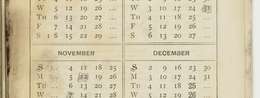 W ... 5 12 19 26 ... W 3 10 17 24 31
TH ... 6 13 20 27 ... TH 4 11 18 25 ...
F ... 7 14 21 28 ... F 5 12 19 26 ...
S 1 8 15 22 29 ... S 6 13 20 27 ...
NOVEMBER DECEMBER
S ... 4 11 18 25 S 2 9 16 23 30
M ... 5 12 19 26 M 3 10 17 24 31
TU ... 6 13 20 27 TU 4 11 18 25 ...
W ... 7 14 21 28 W 5 12 19 26 ...